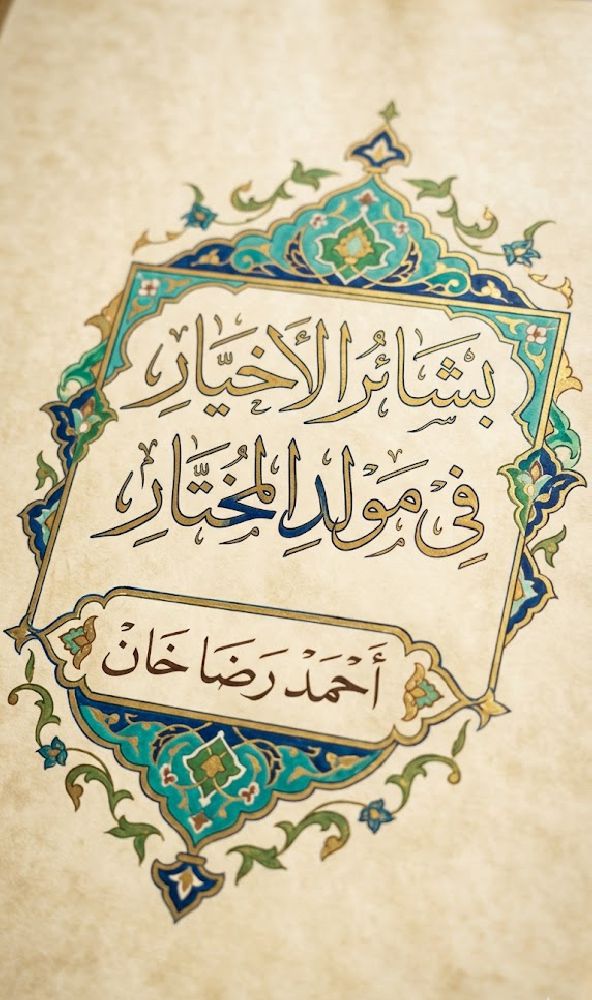 بَشَائِرُ الأَخْيَارِ
فِي مَوْلِدِ المُخْتَارِ
أَحْمَدْ رَضَا خَانْ